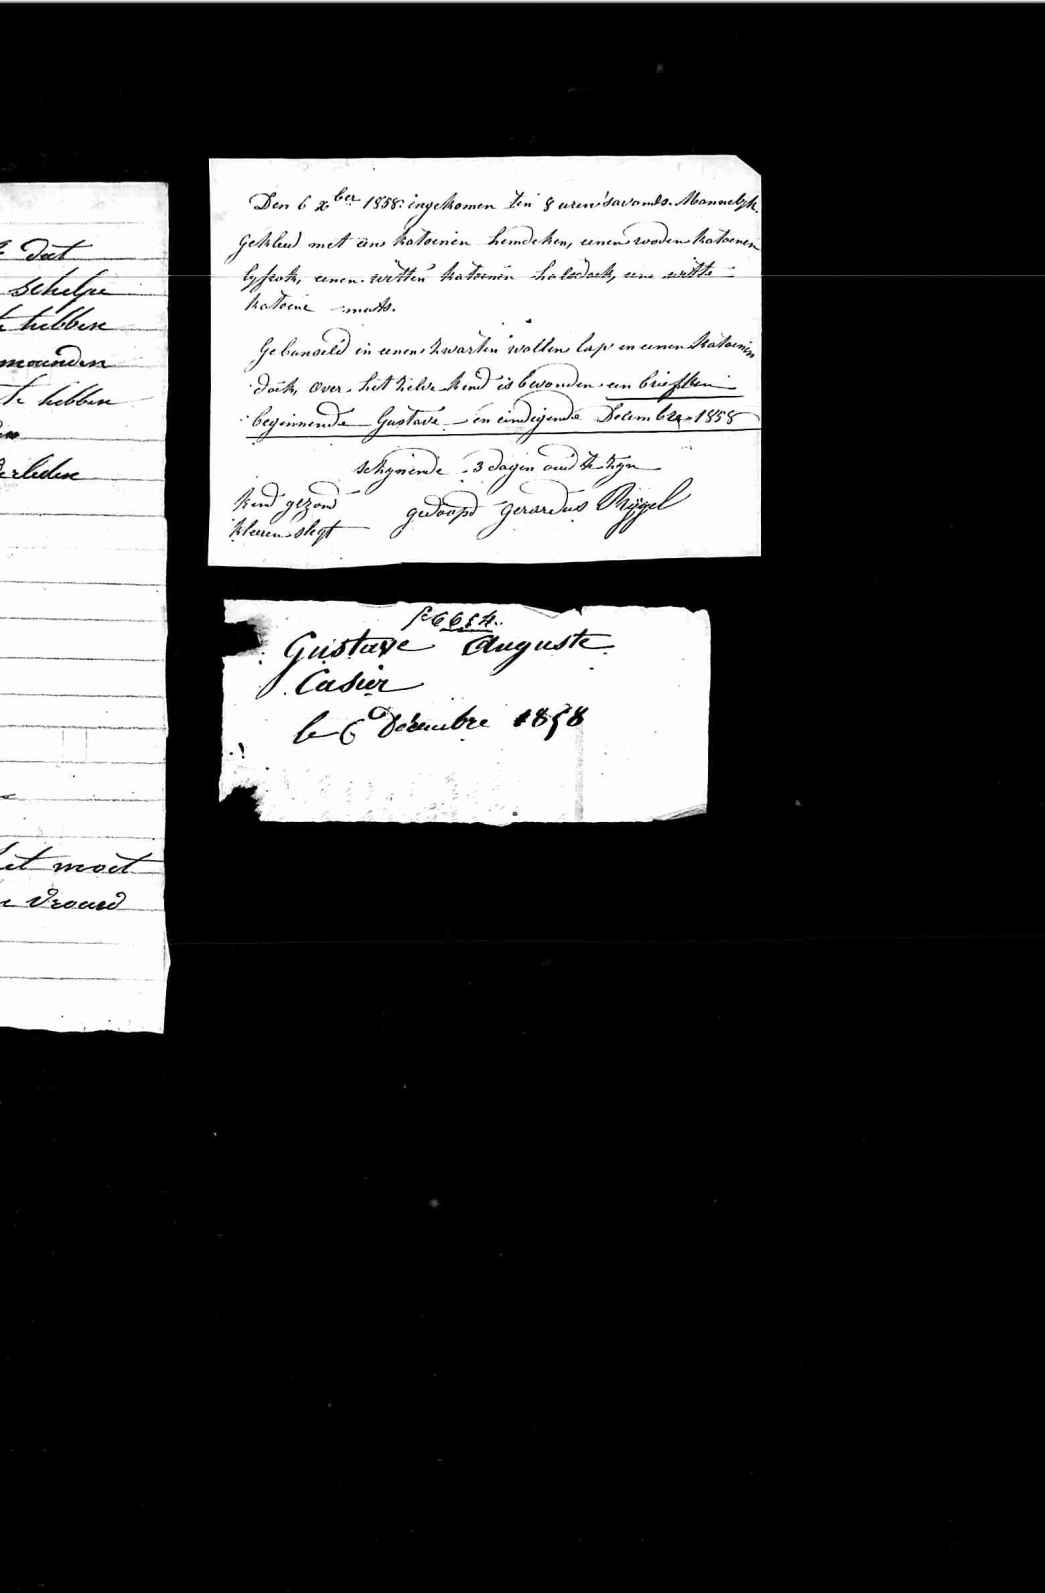 dat
schelpe
te hebben
maanden
te hebben
erleden
het moet
vroued
Den 6 xber 1858 ingekomen ten 8 uren 's avonds. Mannelyk.
Gekleed met een katoenen hemdeken, eenen rooden katoenen
lyfrok, eenen witten katoenen halsdoek, eene witte
katoene muts.
Gebunseld in eenen zwarten wollen lap en eenen katoenen
doek, over het zelve kind is bevonden een briefken
beginnende Gustave en eindigende Decembre 1858
schynende 3 dagen oud te zyn
kind gezond
gedoopt gerardus Rygel
kleeren slegt
Gustave Auguste
Casier
le 6 Décembre 1858